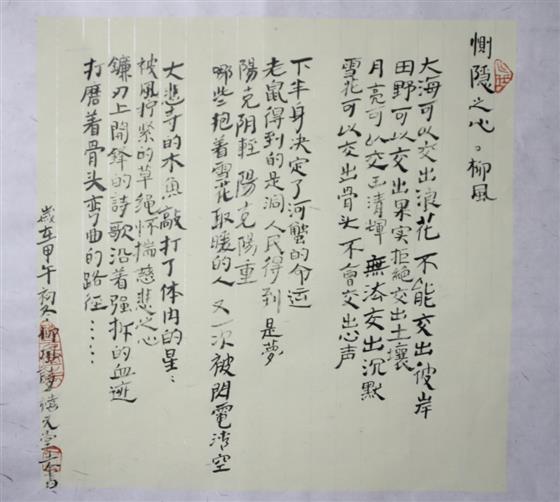 恻隐之心。柳风
大海可以交出浪花 不能交出彼岸
田野可以交出果实拒絶交出土壤
月亮可以交出清輝 無法交出沉默
雪花可以交出骨头不會交出心声
下半身决定了河蟹的命运
老鼠得到的是洞人民得到是夢
陽克阴輕陽克陽重
哪些抱着雪花取暖的人又一次被閃電清空
大悲寺的木魚敲打了体内的星:
被風拧紧的草绳怀揣慈悲之心
鐮刃上開鋒的詩歌沿着强拆的血迹
打磨着骨头弯曲的路径……
歲在甲午 柳風詩 元堂